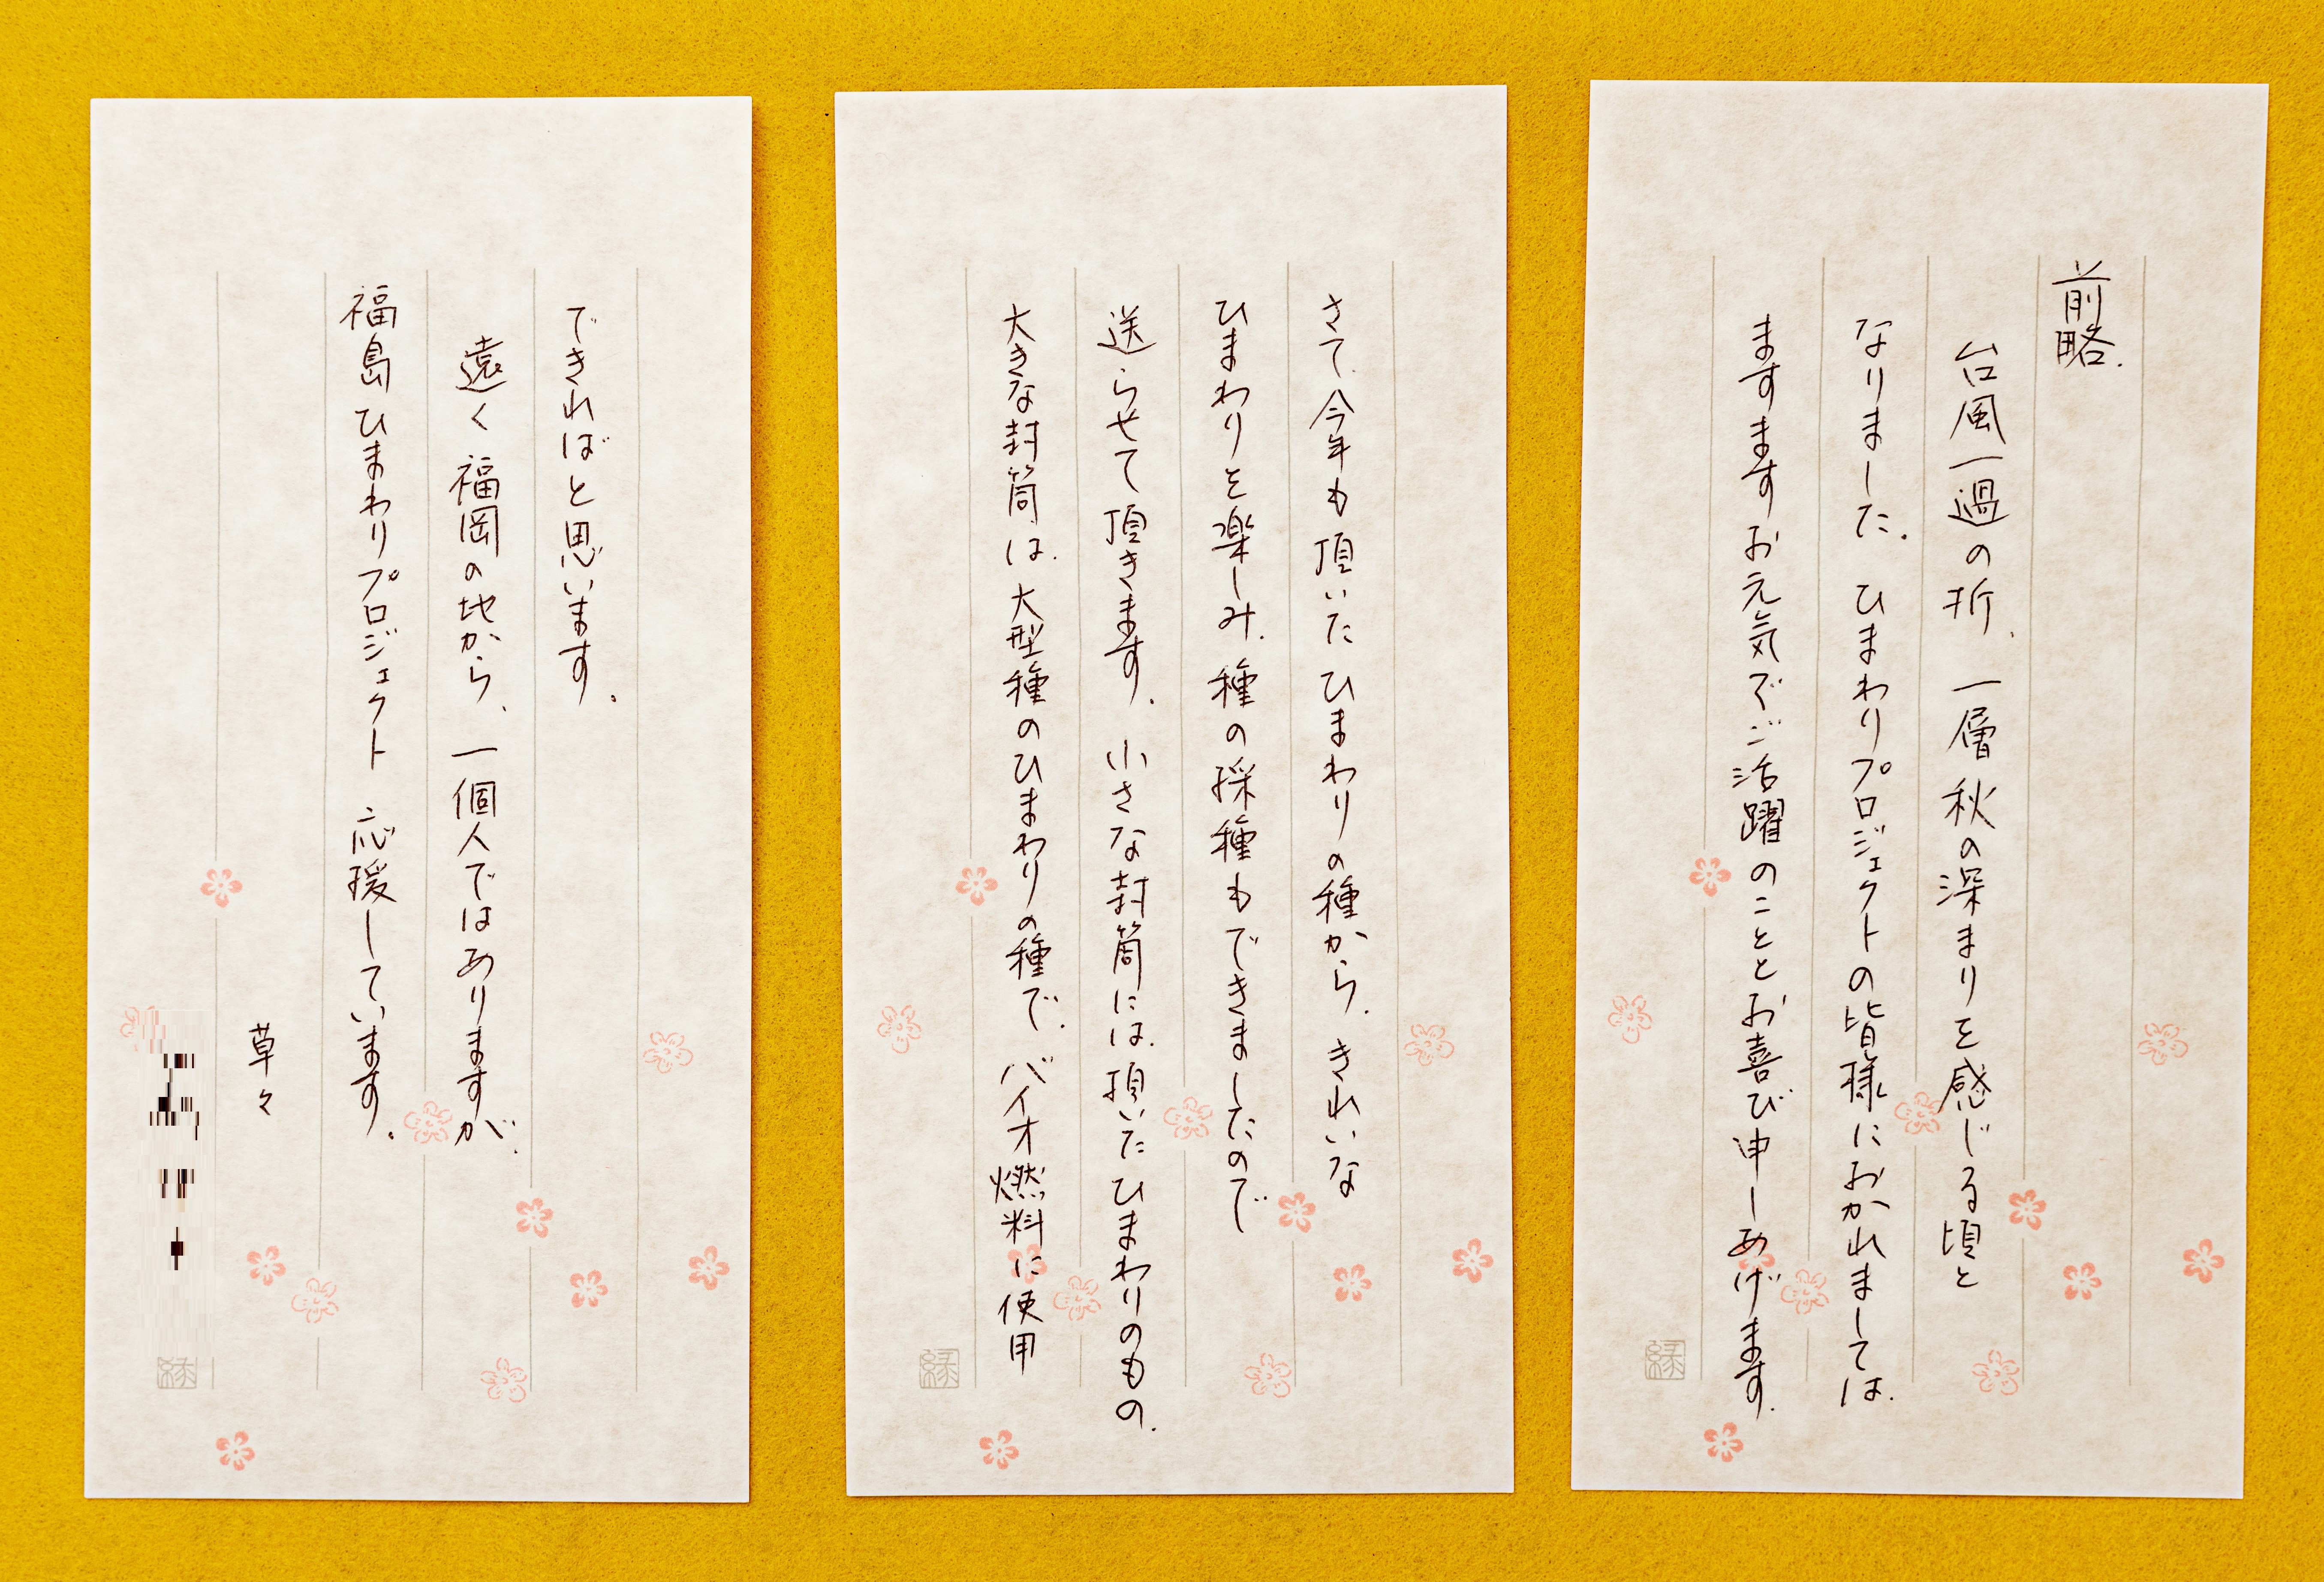 前略.
台風一過の折、一層秋の深まりを感じる頃と
なりました. ひまわりプロジェクトの皆様におかれましては、
ますますお元気でご活躍のこととお喜び申しあげます.
さて、今年も頂いたひまわりの種から、きれいな
ひまわりを楽しみ、種の採種もできましたので
送らせて頂きます. 小さな封筒には、頂いたひまわりのもの、
大きな封筒は、大型種のひまわりの種で、バイオ燃料に使用
できればと思います.
遠く福岡の地から、一個人ではありますが、
福島ひまわりプロジェクト 応援しています.
草々
縁
縁
縁